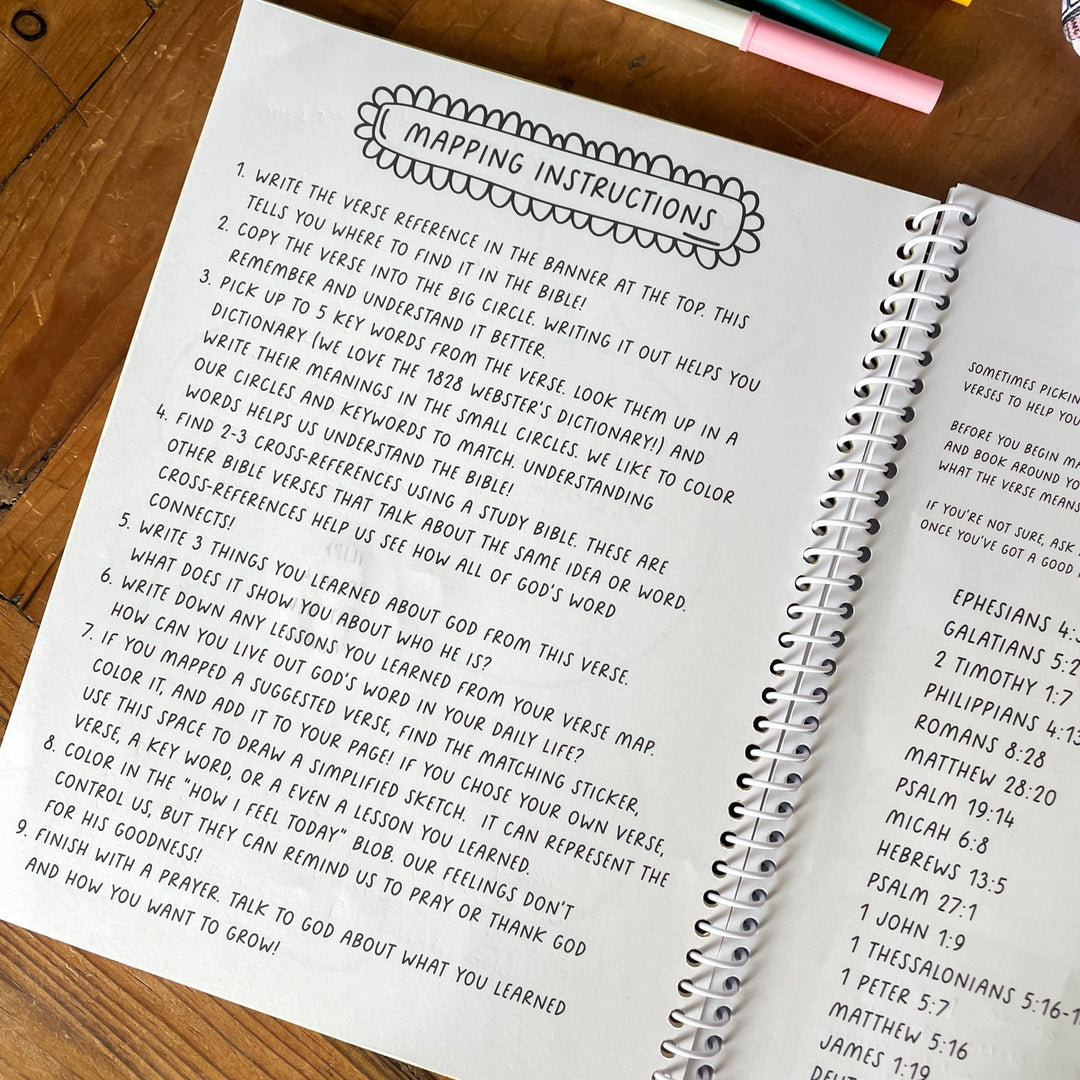 MAPPING INSTRUCTIONS
1. WRITE THE VERSE REFERENCE IN THE BANNER AT THE TOP. THIS
TELLS YOU WHERE TO FIND IT IN THE BIBLE!
2. COPY THE VERSE INTO THE BIG CIRCLE. WRITING IT OUT HELPS YOU
REMEMBER AND UNDERSTAND IT BETTER.
3. PICK UP TO 5 KEY WORDS FROM THE VERSE. LOOK THEM UP IN A
DICTIONARY (WE LOVE THE 1828 WEBSTER'S DICTIONARY!) AND
WRITE THEIR MEANINGS IN THE SMALL CIRCLES. WE LIKE TO COLOR
OUR CIRCLES AND KEYWORDS TO MATCH. UNDERSTANDING
WORDS HELPS US UNDERSTAND THE BIBLE!
4. FIND 2-3 CROSS-REFERENCES USING A STUDY BIBLE. THESE ARE
OTHER BIBLE VERSES THAT TALK ABOUT THE SAME IDEA OR WORD.
CROSS-REFERENCES HELP US SEE HOW ALL OF GOD'S WORD
CONNECTS!
5. WRITE 3 THINGS YOU LEARNED ABOUT GOD FROM THIS VERSE.
WHAT DOES IT SHOW YOU ABOUT WHO HE IS?
6. WRITE DOWN ANY LESSONS YOU LEARNED FROM YOUR VERSE MAP.
HOW CAN YOU LIVE OUT GOD'S WORD IN YOUR DAILY LIFE?
7. IF YOU MAPPED A SUGGESTED VERSE, FIND THE MATCHING STICKER,
COLOR IT, AND ADD IT TO YOUR PAGE! IF YOU CHOSE YOUR OWN VERSE,
USE THIS SPACE TO DRAW A SIMPLIFIED SKETCH. IT CAN REPRESENT THE
VERSE, A KEY WORD, OR A EVEN A LESSON YOU LEARNED.
8. COLOR IN THE "HOW I FEEL TODAY" BLOB. OUR FEELINGS DON'T
CONTROL US, BUT THEY CAN REMIND US TO PRAY OR THANK GOD
FOR HIS GOODNESS!
9. FINISH WITH A PRAYER. TALK TO GOD ABOUT WHAT YOU LEARNED
AND HOW YOU WANT TO GROW!
SOMETIMES PICKIN
VERSES TO HELP YOU
BEFORE YOU BEGIN
AND BOOK AROUND
WHAT THE VERSE MEANS
IF YOU'RE NOT SURE, ASK
ONCE YOU'VE GOT A GOOD
EPHESIANS 4:
GALATIANS 5:2
2 TIMOTHY 1:7
PHILIPPIANS 4:13
ROMANS 8:28
MATTHEW 28:20
PSALM 19:14
MICAH 6:8
HEBREWS 13:5
PSALM 27:1
1 JOHN 1:9
1 THESSALONIANS 5:16-1
1 PETER 5:7
MATTHEW 5:16
JAMES 1:19
DEUT